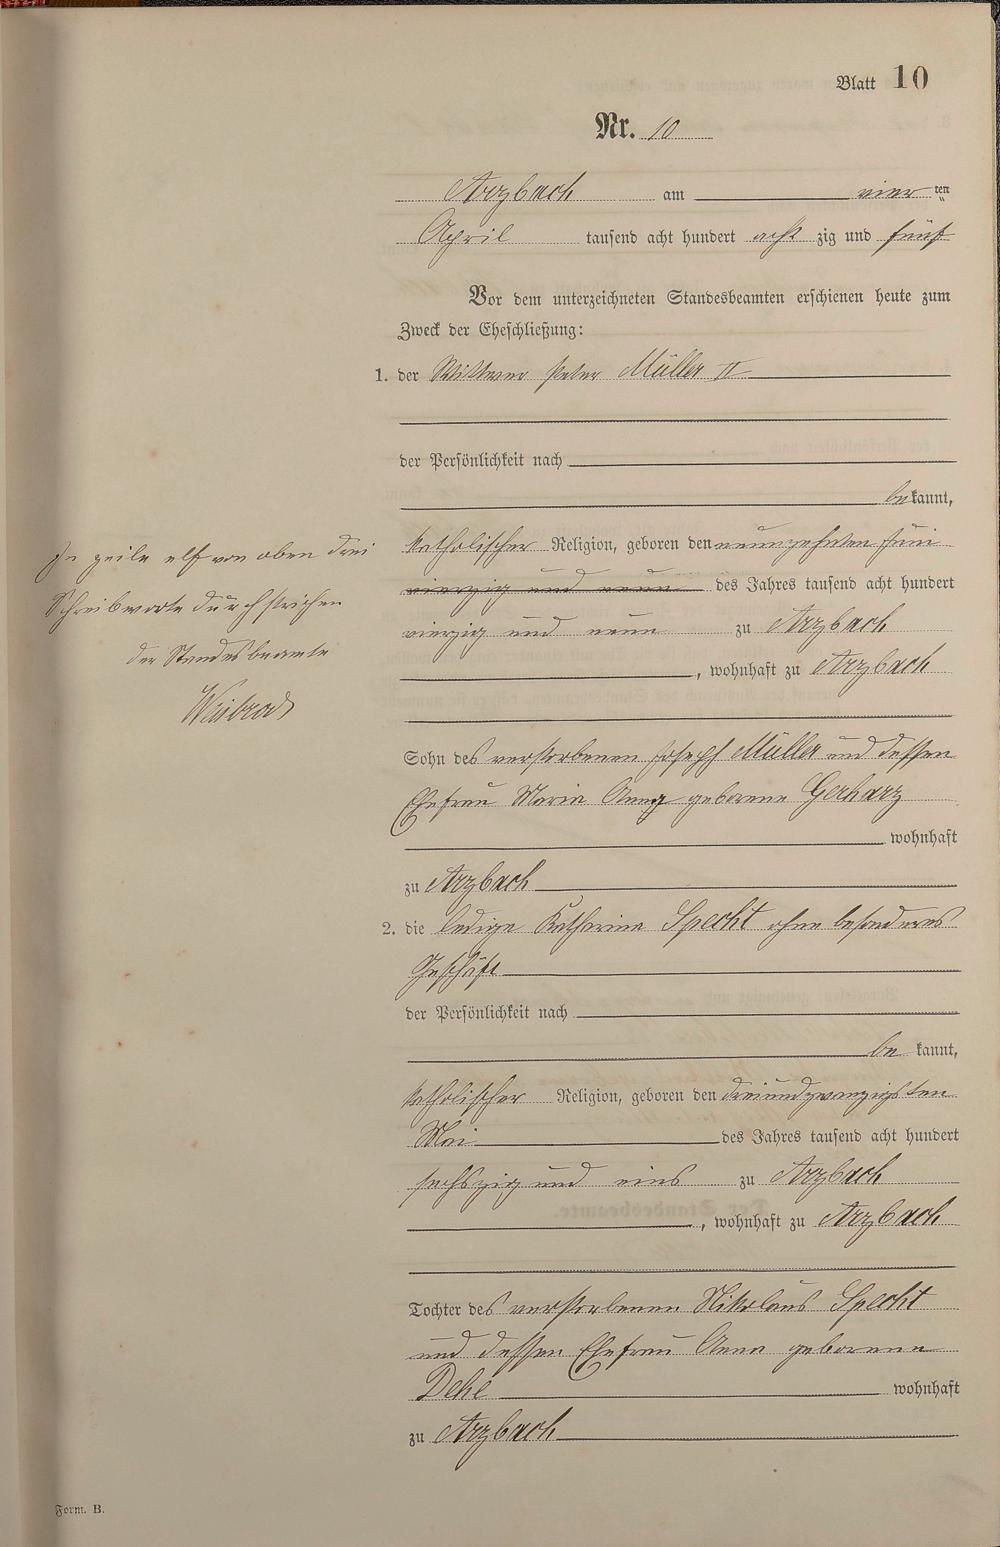 Blatt 10
Nr. 10
Arzbach am vier ten
April tausend acht hundert acht zig und fünf
Vor dem unterzeichneten Standesbeamten erschienen heute zum
Zweck der Eheschließung:
1. der Wittwer Peter Müller II
der Persönlichkeit nach
be kannt,
katholischer Religion, geboren den neunzehnten Juni
vierzig und neun des Jahres tausend acht hundert
vierzig und neun zu Arzbach
, wohnhaft zu Arzbach
Sohn des verstorbenen Joseph Müller und dessen
Ehefrau Maria Anna geborene Gerharz
wohnhaft
zu Arzbach
2. die ledige Katharina Specht ohne besonderes
Geschäft
der Persönlichkeit nach
be kannt,
katholischer Religion, geboren den dreiundzwanzigsten
Mai des Jahres tausend acht hundert
sechszig und eins zu Arzbach
, wohnhaft zu Arzbach
Tochter des verstorbenen Nikolaus Specht
und dessen Ehefrau Anna geborene
Dehl wohnhaft
zu Arzbach
In Zeile elf von oben drei
Schreibworte durchstrichen
der Standesbeamte
Form. B.